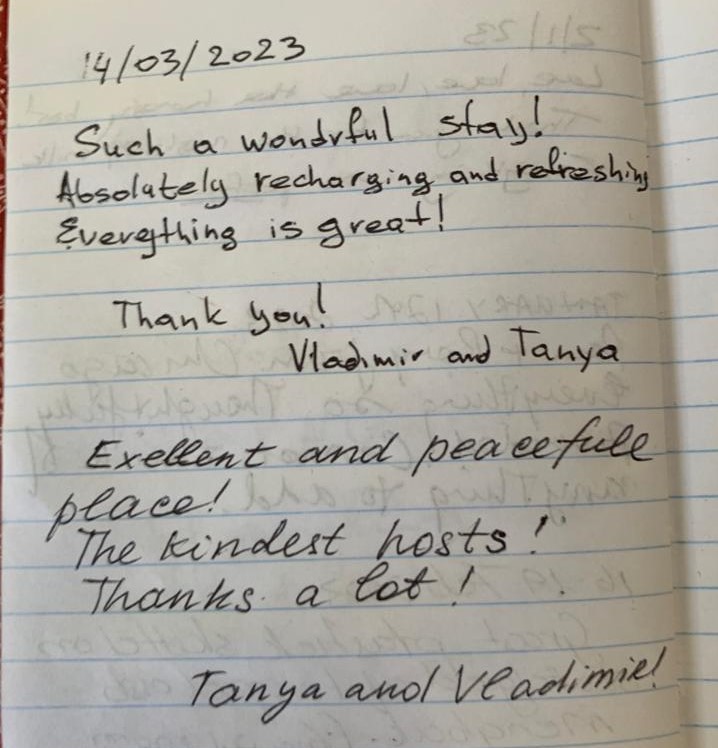 14/03/2023
Such a wondrful stay!
Absolutely recharging and refreshing
Everything is great!
Thank you!
Vladimir and Tanya
Exellent and peacefull
place!
The kindest hosts!
Thanks a lot!
Tanya and Vladimir!